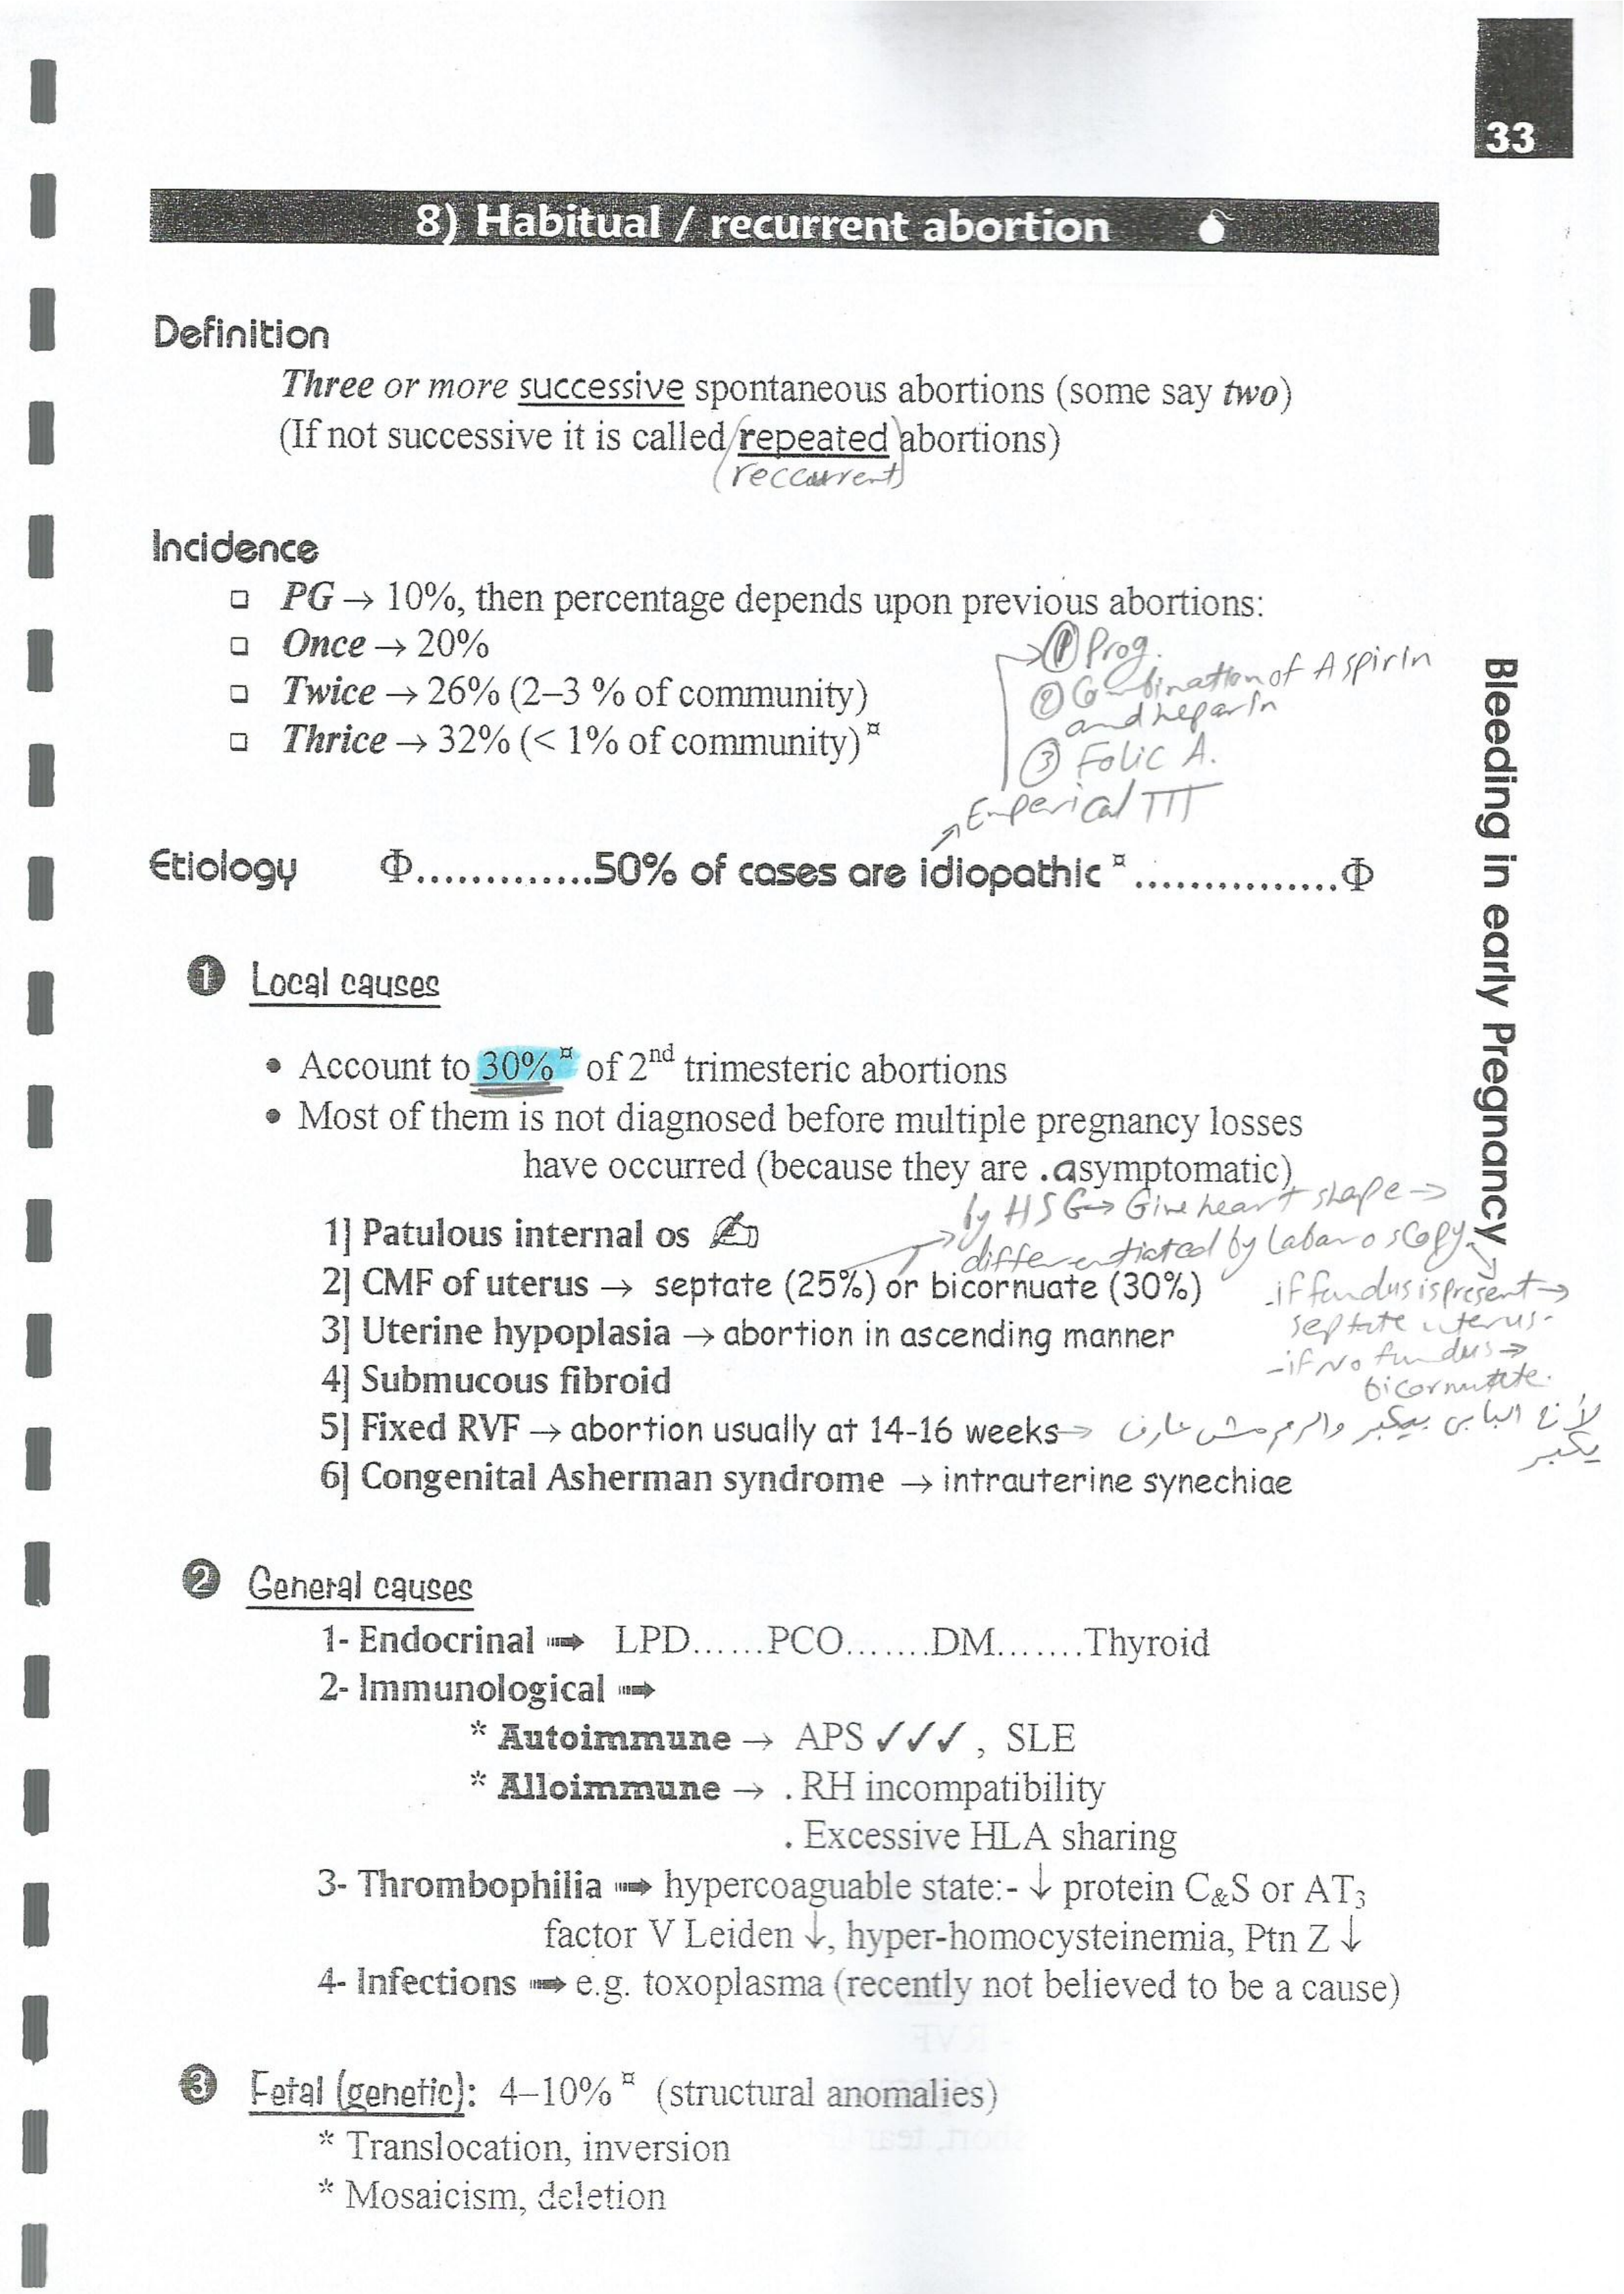 33
8) Habitual / recurrent abortion
Definition
Three or more successive spontaneous abortions (some say two)
(If not successive it is called repeated abortions)
(reccurrent)
Incidence
❑ PG → 10%, then percentage depends upon previous abortions:
❑ Once → 20%
❑ Twice → 26% (2–3 % of community)
❑ Thrice → 32% (< 1% of community) ¤
→ ① Prog.
② Combination of Aspirin
and heparin
③ Folic A.
Emperical TTT
Etiology Φ.............50% of cases are idiopathic ¤ ...............Φ
❶ Local causes
• Account to 30% ¤ of 2nd trimesteric abortions
• Most of them is not diagnosed before multiple pregnancy losses
have occurred (because they are .asymptomatic)
by HSG → Give heart shape →
differentiated by Labaroscopy
1] Patulous internal os ✍
2] CMF of uterus → septate (25%) or bicornuate (30%)
- if fundus is present →
septate uterus.
- if No fundus →
bicornutate.
3] Uterine hypoplasia → abortion in ascending manner
4] Submucous fibroid
5] Fixed RVF → abortion usually at 14-16 weeks → لأن البابي بيكبر والرحم مش عارف
يكبر
6] Congenital Asherman syndrome → intrauterine synechiae
❷ General causes
1- Endocrinal ➟ LPD......PCO.......DM.......Thyroid
2- Immunological ➟
* Autoimmune → APS ✓✓✓ , SLE
* Alloimmune → . RH incompatibility
. Excessive HLA sharing
3- Thrombophilia ➟ hypercoaguable state:- ↓ protein C&S or AT3
factor V Leiden ↓, hyper-homocysteinemia, Ptn Z ↓
4- Infections ➟ e.g. toxoplasma (recently not believed to be a cause)
❸ Fetal (genetic): 4–10% ¤ (structural anomalies)
* Translocation, inversion
* Mosaicism, deletion
Bleeding in early Pregnancy